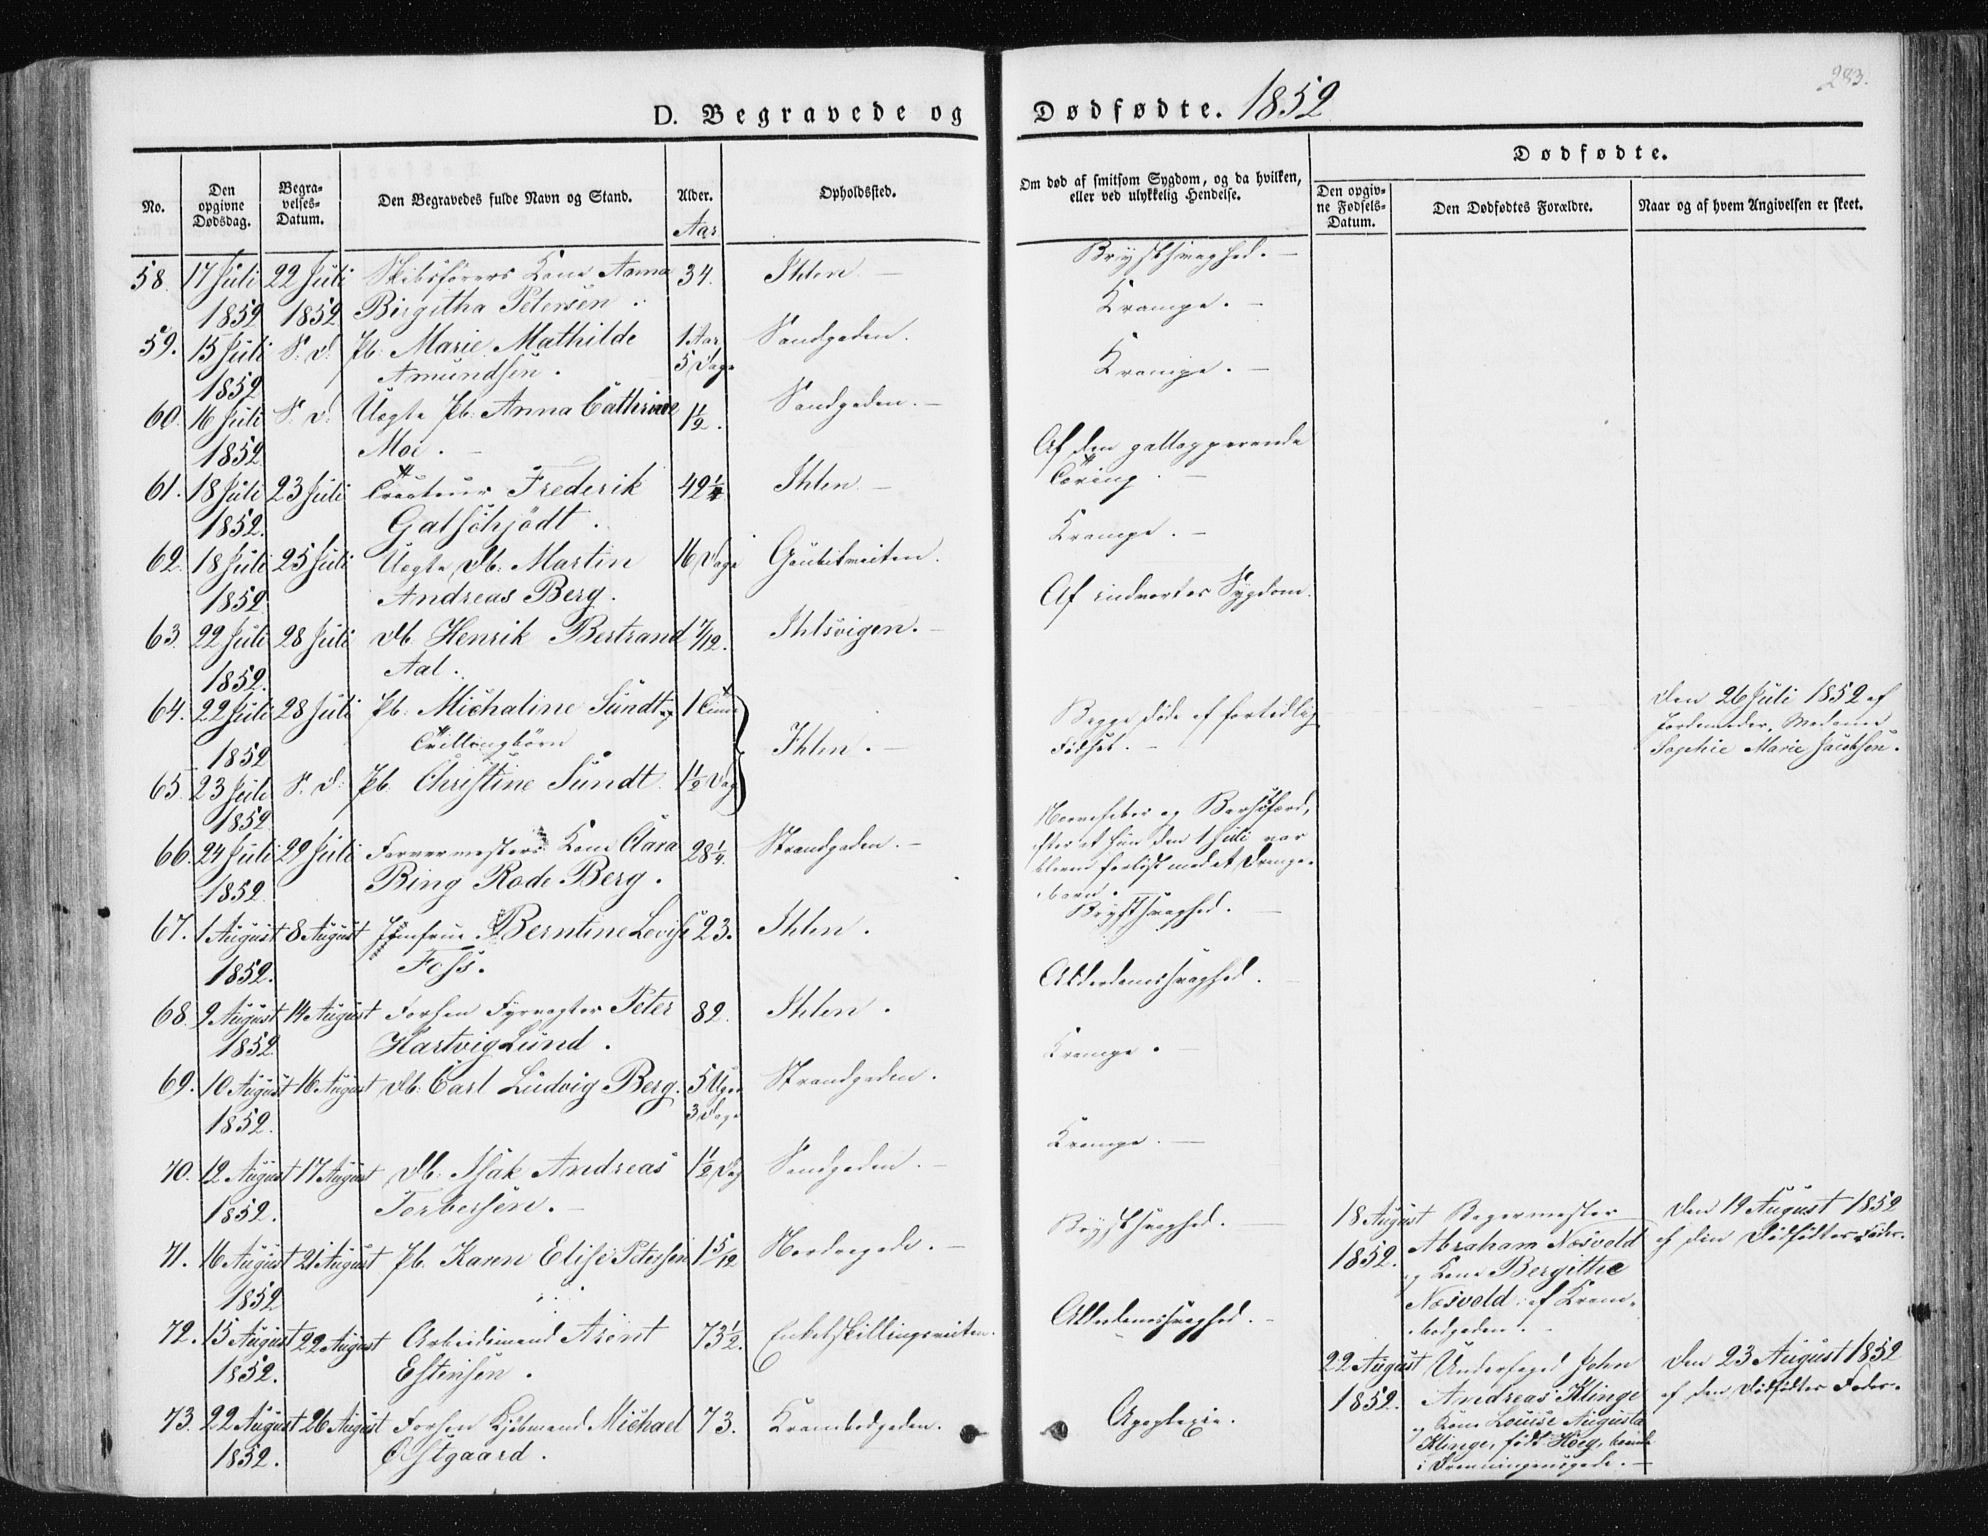 283.
D. Begravede og Dødfødte. 1852
No.
Den opgivne Dødsdag.
Begravelses-Datum.
Den Begravedes fulde Navn og Stand.
Alder. Aar
Opholdssted.
Om død af smitsom Sygdom, og da hvilken,
eller ved ulykkelig Hendelse.
Dødfødte.
Den opgivne Fødsels-Datum.
Den Dødfødtes Forældre.
Naar og af hvem Angivelsen er skeet.
58. 17 Juli 22 Juli Skibsførers Kone Anna 34. Ihlen. Brystsvaghed.
1852 1852 Birgitha Petersen. Krampe.
59. 15 Juli S. d. Pb. Marie Mathilde 1 Aar Sandgaden.
1852 Amundsen. 5 Dage Krampe.
60. 16 Juli S. d. Uegte Pb. Anna Cathrine 1½. Sandgaden.
1852 Moe. Af den
61. 18 Juli 23 Juli Frederik 42¼ Ihlen.
1852. Galschjødt. Krampe.
62. 18 Juli 25 Juli Uegte Db. Martin 16 Dage
1852 Andreas Berg. Af indvortes Sygdom.
63. 22 Juli 28 Juli Db. Henrik Bertrand 7/12. Ihlsvigen.
1852. Aal.
64. 22 Juli 28 Juli Pb. Michaline Sundt, 1 Begge døde af fortidlig Den 26 Juli 1852 af
1852 Tvillingbørn Ihlen. Fødsel. Jordemoder, Madame
Sophie Marie Jacobsen.
65. 23 Juli S. d. Pb. Christine Sundt. 1½ Dag
1852
66. 24 Juli 29 Juli Farvermesters Kone Clara 28¼. Strandgaden. Nervefeber og Barselfærd,
1852. Bing Rode Berg. efter at hun den 1 Juli var
bleven forløst med et Drenge-
barn.
67. 1 August 8 August Jomfrue Berntine Lovise 23. Ihlen. Brystsvaghed.
1852. Foss.
68. 9 August 14 August Forhen Fyrvogter Peter 82. Ihlen. Alderdomssvaghed.
1852 Hartvig Lund.
69. 10 August 16 August Db. Carl Ludvig Berg. 5 Uger Strandgaden. Krampe.
1852. 3 Dage
70. 12 August 17 August Db. Isak Andreas 1½ Dag Sandgaden. Krampe.
1852. Torbersen.
71. 16 August 21 August Pb. Karen Elise Petersen 1 5/12 Nordregade. Brystsvaghed.
1852
18 August Bagermester Den 19 August 1852
1852. Abraham Næsvold af den Dødfødtes Fader.
og Kone Bergithe
Næsvold: af Kram-
bodgaden.
72. 15 August 22 August Arbeidsmand Arent 73½. Enkelskillingsveiten. Alderdomssvaghed.
1852. Estensen.
22 August Underfoged John Den 23 August 1852
1852. Andreas Klinge af den Dødfødtes Fader.
og Kone Louise Augusta
Klinge, født Høeg, boende
i Dronningensgade.
73. 22 August 26 August Forhen Kjøbmand Michael 73. Krambodgaden. Apoplexie.
1852. Østgaard.